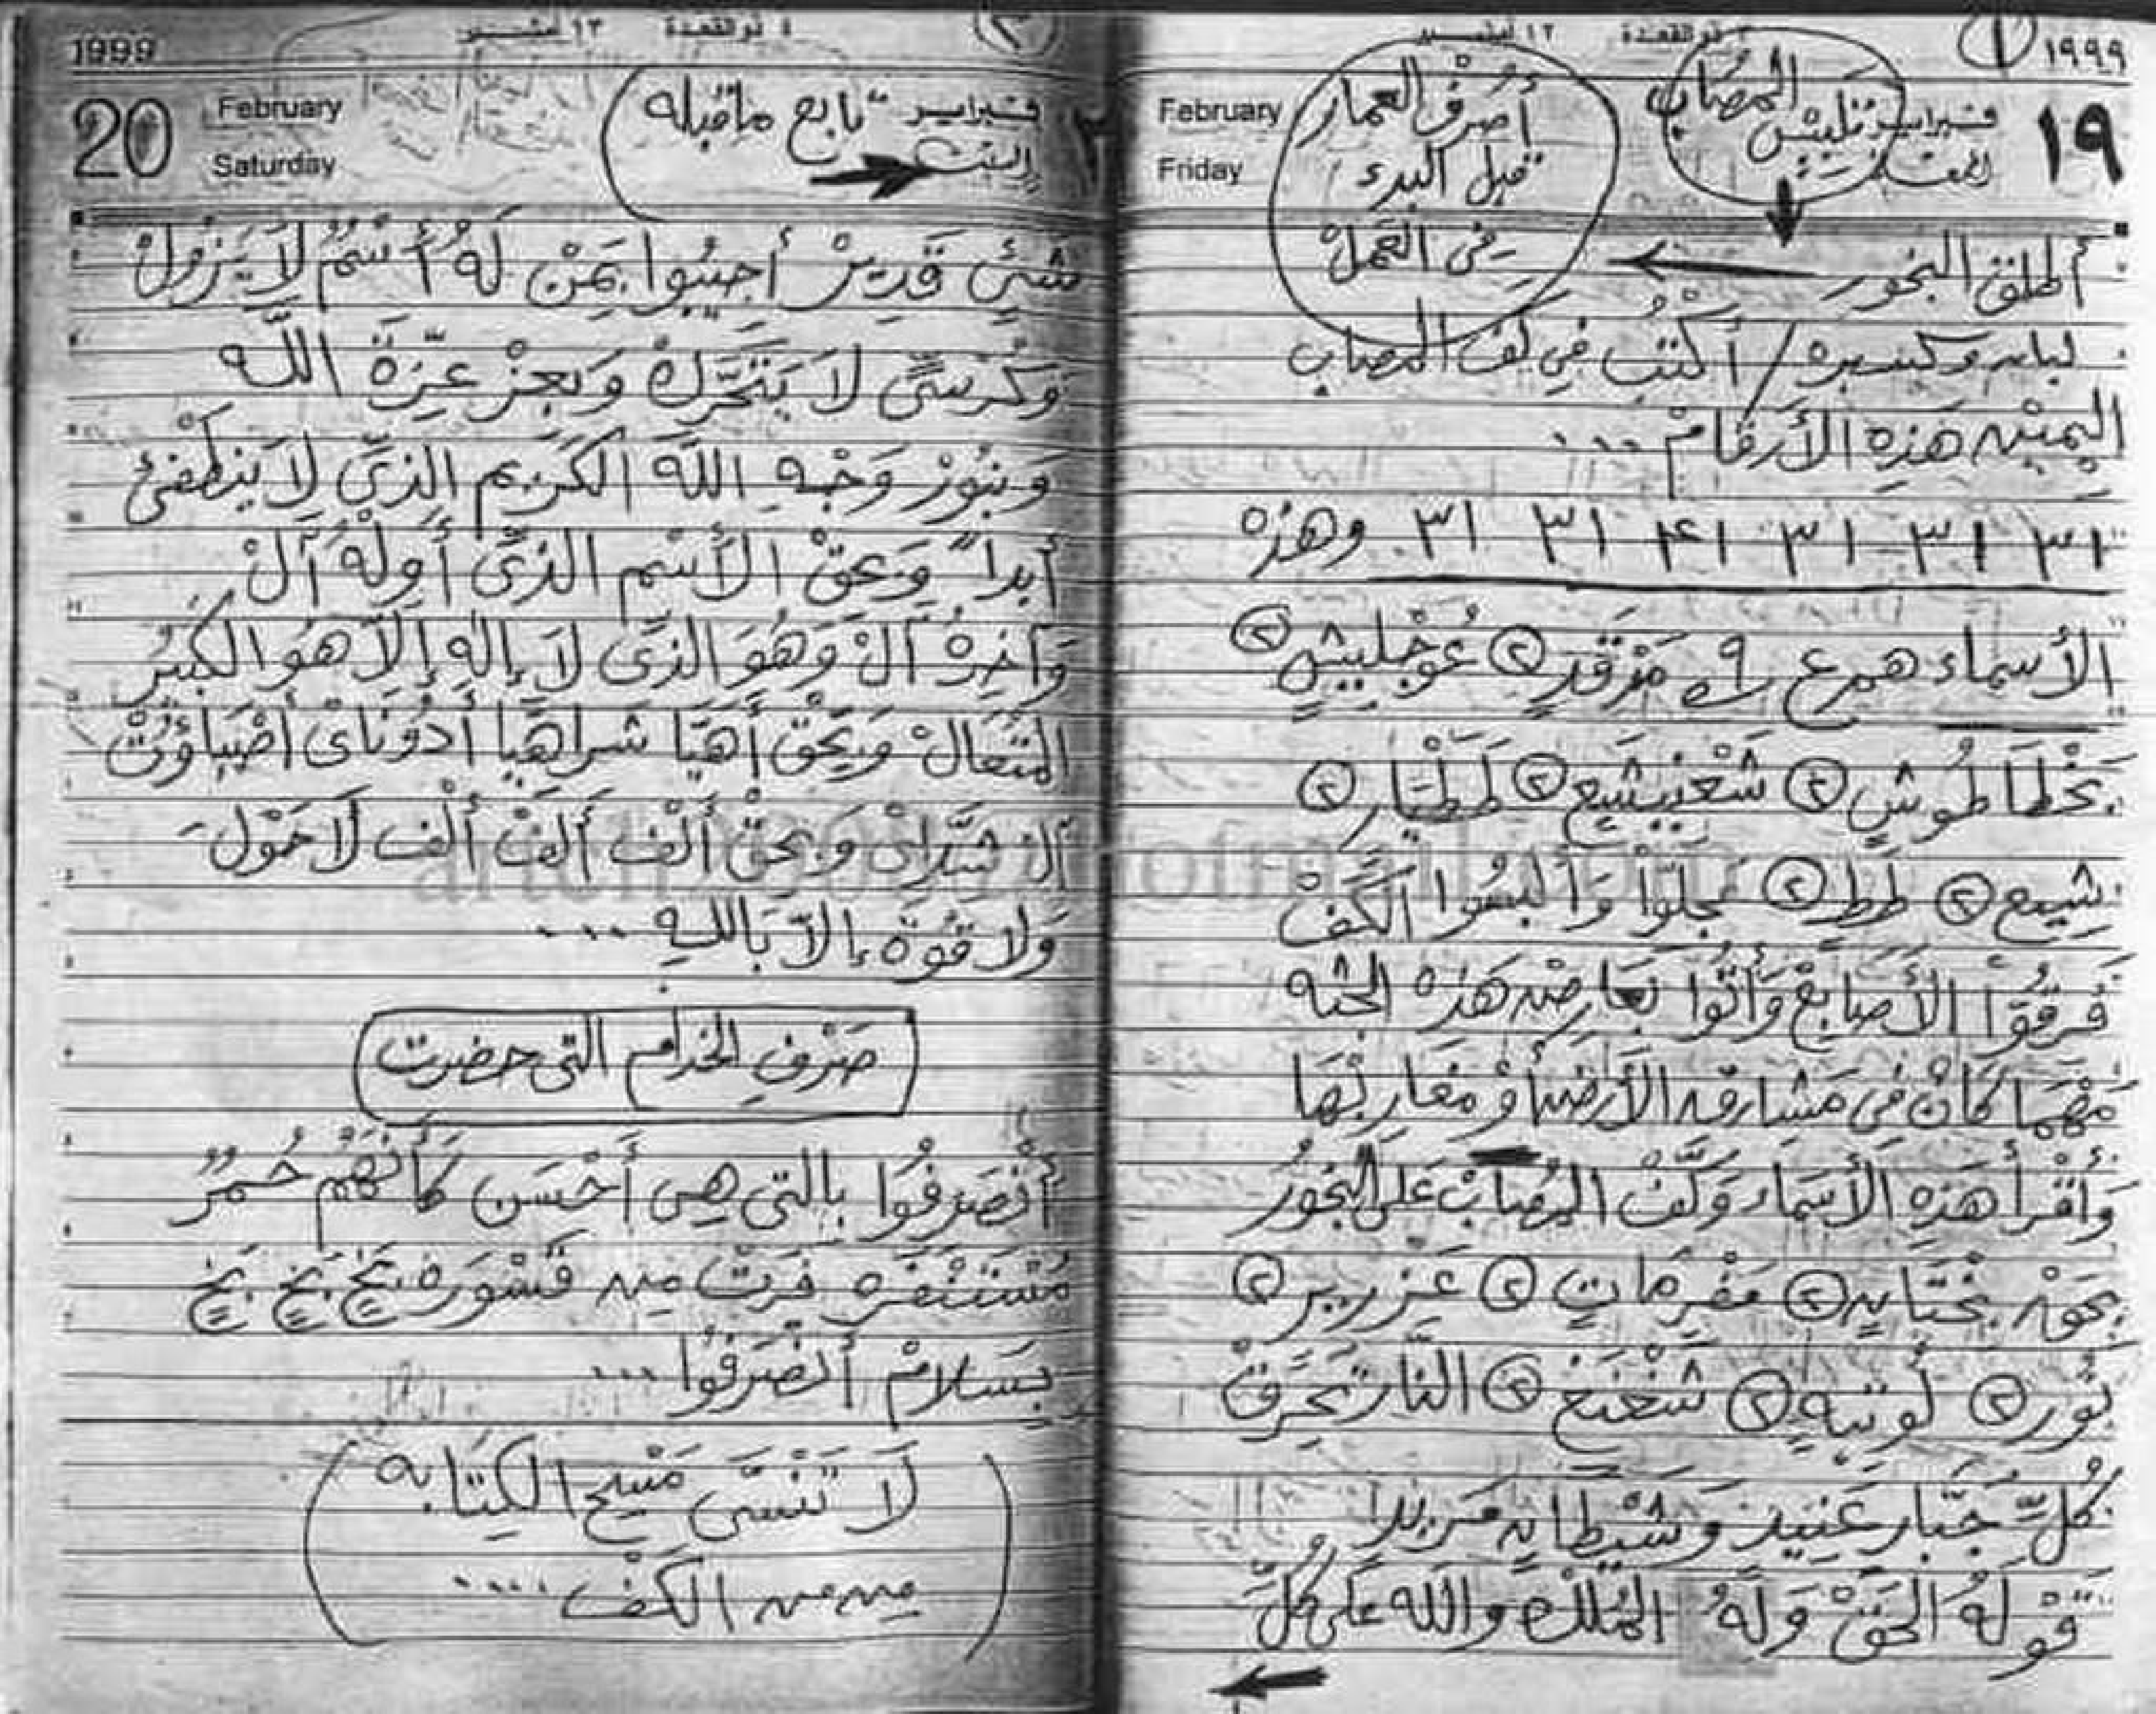 ١٩٩٩ ①
١٩
February
Friday
فبراير
الجمعة
تلبيس المصاب
أصرف العمار
قبل البدء
في العمل
أطلق البخور
لبان وكسبره / أكتب في كف المصاب
اليمين هَذِهِ الأرقامْ ...
٣١ ٣١ ٣١ ٤١ ٣١ ٣١ وهذه
الأسماء هم ع ٩ مَزْقَدٍ ② عُوْجَلِيشٍ ②
بَخْطَاطُوشٍ ② شَعْنِيشيعٍ ② طَطْيَارٍ ②
شِيعٍ ② طَطٍ ② عَجِلوْا وَألبسُوا الكَفْ
فَرقُوْا الأَصَابِعْ وَأتُوا بَعَارِض هَذِهْ الجثه
مَهْمَا كَانْ فِي مَشَارِق الأَرض أوْ مغَارِبْهَا
وَأقْرأ هَذِهِ الأَسمَاء وَكَفْ المُصَابْ عَلى البَخُورُ
بحَق بَخْتَانٍ ② مَفْرِمَاتٍ ② عَزرِيرٍ ②
نُورٍ ② لُوتيهٍ ② شَغْنَغٍ ② النَّار تَحَرِقْ
كُلّ جَبَّار عَنِيد وَشَيْطَان مَريداً
قَوْلَهُ الحَقْ وَلَهُ المُلكْ والله عَلى كُلّ
1999 ②
20
February
Saturday
فبراير
السبت
تابع ماقبله
شئٍ قَدِيرْ أجيبُوا بمَنْ لَهُ أسْمٌ لاَ يَزولْ
وَكُرْسىٌّ لاَ يَتَحَّركْ وَبعِزْ عِزَةْ اللَّه
وَبنُورْ وَجْهِ اللَّه الكَرِيم الذِيّ لاَ ينطَفئ
أبداً وَبحقْ الأسم الذىّ أوله آلْ
وَآخِرهُ آلْ وَهُوَ الذىّ لاَ إلهِ إلَّا هُوَ الكَبيرُ
المتَعَالْ وَبحَقْ أهَيَا شَراهَيا أدُونَاىْ أصْبَاؤتْ
آل شدَّاىْ وَبحَقْ أَلْف أَلفْ أَلْف لاَحَوْلَ
وَلا قوَة إلاَّ بَاللهِ ...
صَرْفِ الخدام التى حضرت
أنْصَرِفُوا بالتى هِى أَحْسَن كَأَنَهُمْ حُمُرٌ
مُسْتَنْفَرَه فَرَتْ مِن قَسْوَرَه بَخٍ بَخٍ بَخٍ
بسَلامْ أنصَرفُوا ...
لاَ تَنْسَى مَسِح الكِتَابه
مِن الكَفْ ....